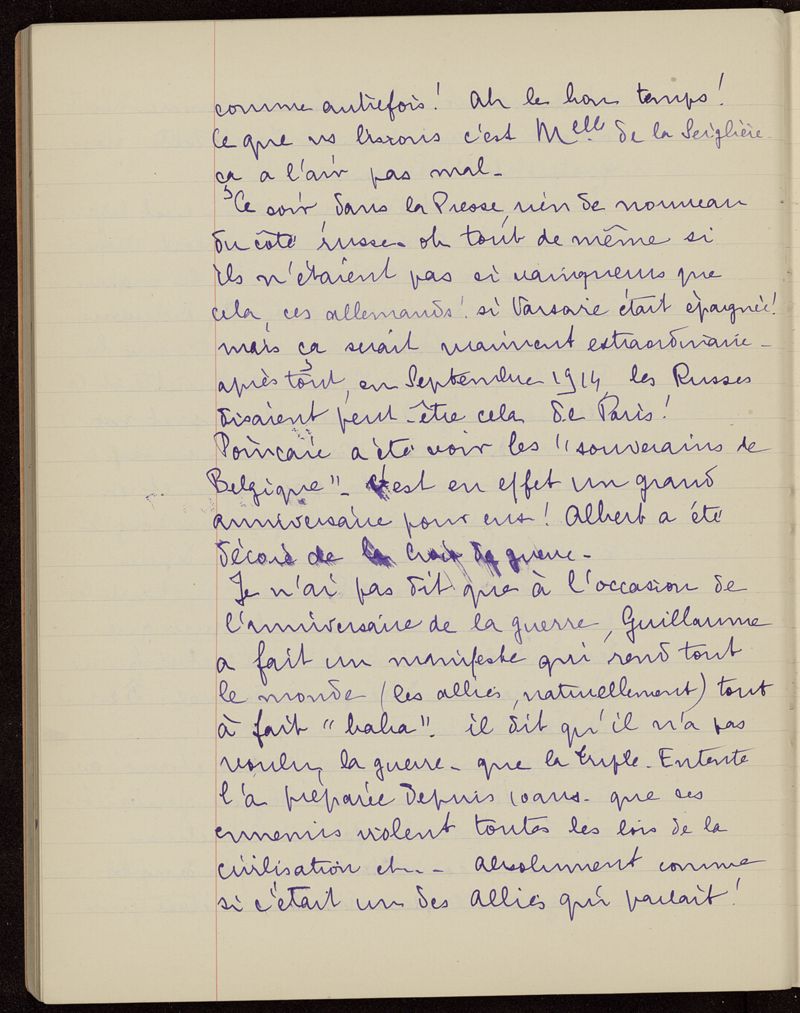 comme autrefois! Ah le bon temps!
Ce que ns lisrons c'est Melle de la Seiglière
ça a l'air pas mal -
Ce soir, dans la Presse, rien de nouveau
du côté russe - oh tout de même si
ils n'étaient pas si vainqueurs que
cela, ces allemands! si Varsovie était épargnée!
mais ça serait vraiment extraordinaire -
après tout, en Septembre 1914 les Russes
disaient peut-être cela de Paris!
Poincaré a été voir les "souverains de
Belgique" - c'est en effet un grand
anniversaire pour eux! Albert a été
décoré de la Croix de guerre -
Je n'ai pas dit que à l'occasion de
l'anniversaire de la guerre, Guillaume
a fait un manifeste qui rend tout
le monde (les alliés, naturellement) tout
à fait "baba". il dit qu'il n'a pas
voulu la guerre - que la Triple-Entente
l'a préparée depuis 10 ans - que ses
ennemis violent toutes les lois de la
civilisation et... absolument comme
si c'était un des Alliés qui parlait!